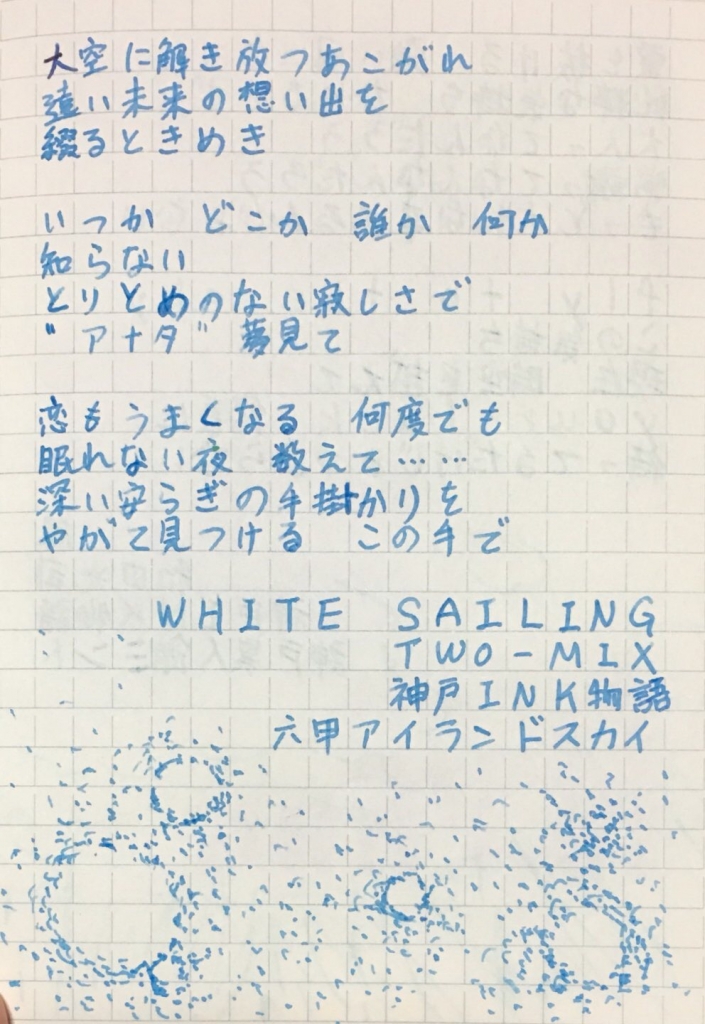 大空に解き放つあこがれ
遠い未来の想い出を
綴るときめき
いつか　どこか　誰か　何か
知らない
とりとめのない寂しさで
"アナタ"　夢見て
恋もうまくなる　何度でも
眠れない夜　数えて……
深い安らぎの手掛かりを
やがて見つける　この手で
WHITE SAILING
TWO-MIX
神戸INK物語
六甲アイランドスカイ